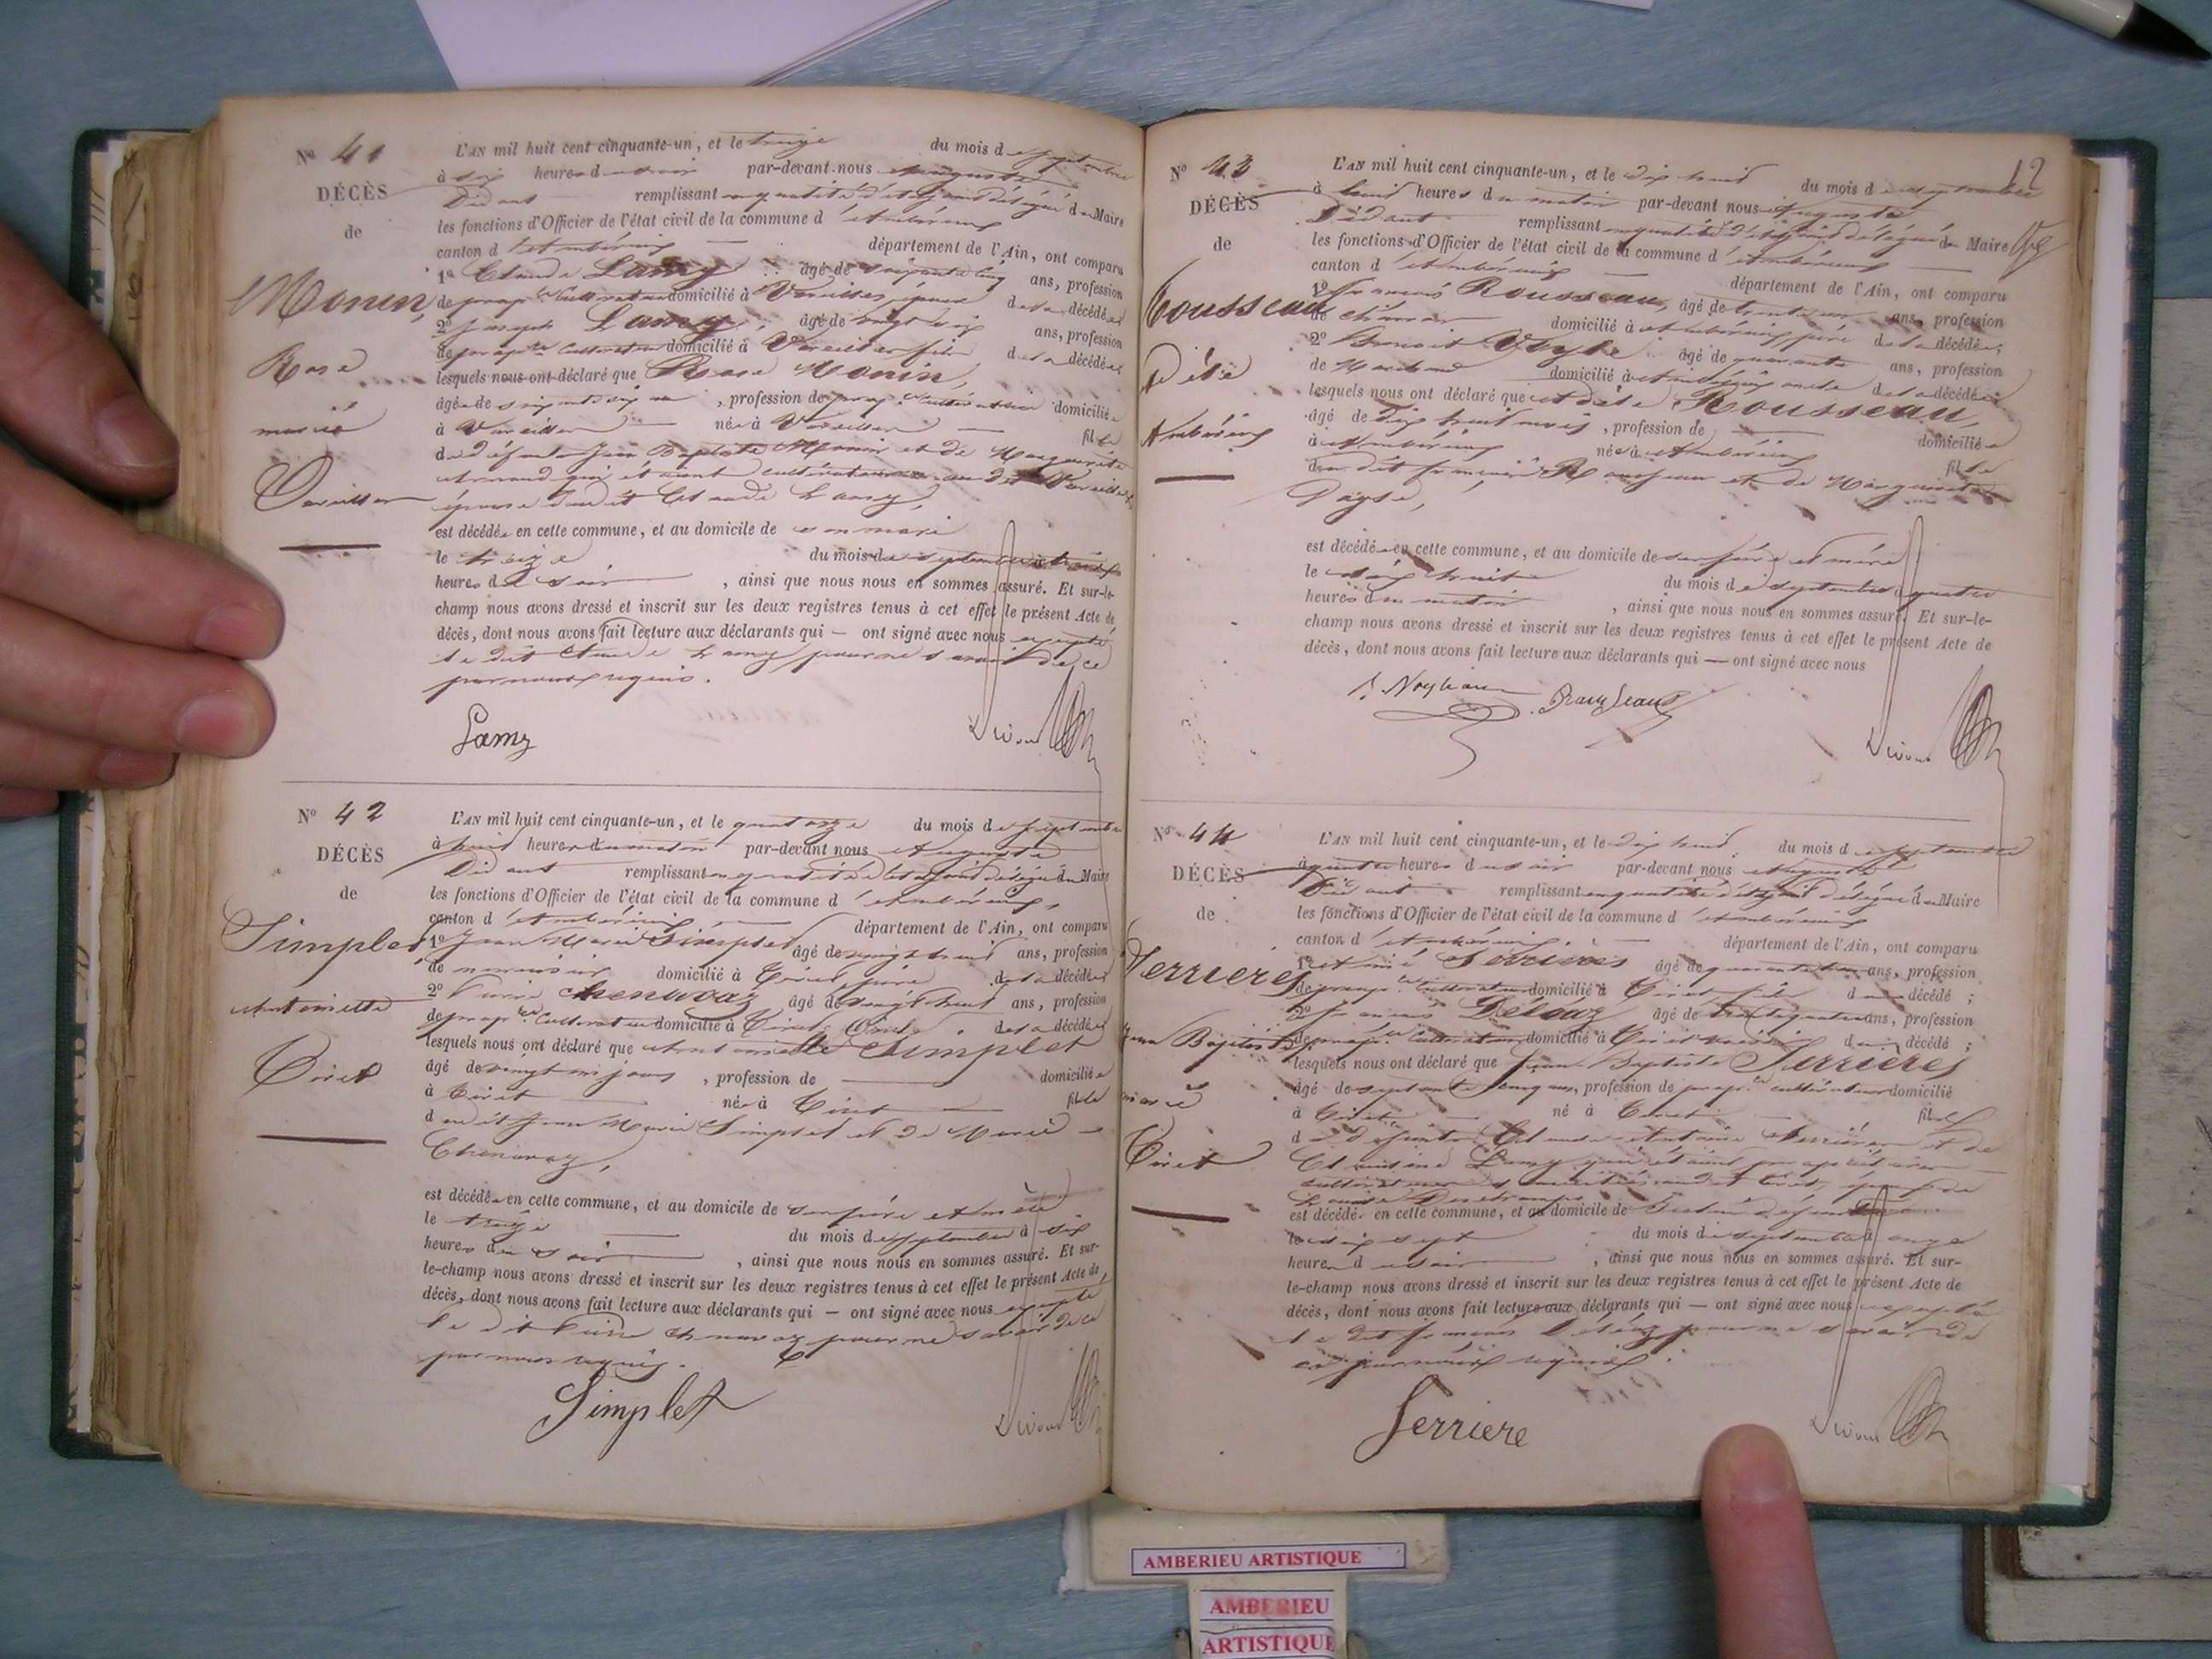 No 41
DÉCÈS
de
Monin,
Rose
mariée
Vareilles
L'AN mil huit cent cinquante-un, et le treize du mois de septembre
à six heures du soir par-devant nous Auguste
Didout remplissant en qualité d'adjoint délégué du Maire
les fonctions d'Officier de l'état civil de la commune d'Ambérieux
canton d'Ambérieux département de l'Ain, ont comparu
1o Claude Lamy âgé de soixante cinq ans, profession
de prop.re Cultivateur domicilié à Vareilles, époux de la décédée
2o Joseph Lamy, âgé de vingt six ans, profession
de prop.re Cultivateur domicilié à Vareilles fils de la décédée
lesquels nous ont déclaré que Rose Monin,
âgée de , profession de prop.re cultivatrice domiciliée
à Vareilles née à Vareilles fille
de défunts Jean Baptiste Monin et de Marguerite
qui étaient cultivateurs au dit Vareilles
épouse du dit Claude Lamy,
est décédée en cette commune, et au domicile de son mari
le treize du mois de septembre à trois
heures du soir , ainsi que nous nous en sommes assuré. Et sur-le-
champ nous avons dressé et inscrit sur les deux registres tenus à cet effet le présent Acte de
décès, dont nous avons fait lecture aux déclarants qui — ont signé avec nous excepté
le dit Claude Lamy pour ne savoir de ce
par nous requis.
Lamy
No 42
DÉCÈS
de
Simplet
Antoinette
Tiret
L'AN mil huit cent cinquante-un, et le quatorze du mois de septembre
à huit heures du matin par-devant nous Auguste
Didout remplissant en qualité d'adjoint délégué du Maire
les fonctions d'Officier de l'état civil de la commune d'Ambérieux,
canton d'Ambérieux département de l'Ain, ont comparu
1o Jean Marie Simplet âgé de vingt huit ans, profession
de menuisier domicilié à Tiret, père de la décédée
2o Pierre Chenavaz âgé de vingt huit ans, profession
de prop.re Cultivateur domicilié à Tiret, Oncle de la décédée
lesquels nous ont déclaré que Antoinette Simplet
âgé de vingt un jours , profession de domiciliée
à Tiret née à Tiret fille
du dit Jean Marie Simplet et de Marie
Chenavaz,
est décédée en cette commune, et au domicile de son père et mère
le treize du mois de septembre à six
heures du soir , ainsi que nous nous en sommes assuré. Et sur-
le-champ nous avons dressé et inscrit sur les deux registres tenus à cet effet le présent Acte de
décès, dont nous avons fait lecture aux déclarants qui — ont signé avec nous excepté
le dit Pierre Chenavaz pour ne savoir de ce
par nous requis.
Simplet
12
No 43
DÉCÈS
de
Rousseau
Adèle
Ambérieux
L'AN mil huit cent cinquante-un, et le dix huit du mois de septembre
à huit heures du matin par-devant nous Auguste
Didout remplissant en qualité d'adjoint délégué du Maire
les fonctions d'Officier de l'état civil de la commune d'Ambérieux
canton d'Ambérieux département de l'Ain, ont comparu
1o François Rousseau, âgé de ans, profession
de domicilié à Ambérieux, père de la décédée;
2o Benoit âgé de quarante ans, profession
de Marchand domicilié à Ambérieux oncle de la décédée
lesquels nous ont déclaré que Adèle Rousseau,
âgé de Dix huit mois , profession de domiciliée
à Ambérieux née à Ambérieux fille
du dit François Rousseau et de Marguerite
est décédée en cette commune, et au domicile de ses père et mère
le dix huit du mois de septembre à quatre
heures du matin , ainsi que nous nous en sommes assuré. Et sur-le-
champ nous avons dressé et inscrit sur les deux registres tenus à cet effet le présent Acte de
décès, dont nous avons fait lecture aux déclarants qui — ont signé avec nous
No 44
DÉCÈS
de
Serrieres
Jean Baptiste
marié
Tiret
L'AN mil huit cent cinquante-un, et le dix huit du mois de septembre
à quatre heures du soir par-devant nous Auguste
Didout remplissant en qualité d'adjoint délégué du Maire
les fonctions d'Officier de l'état civil de la commune d'Ambérieux
canton d'Ambérieux département de l'Ain, ont comparu
1o Aimé Serrières âgé de ans, profession
de prop.re Cultivateur domicilié à Tiret, fils du décédé ;
2o François âgé de trente quatre ans, profession
de prop.re Cultivateur domicilié à Tiret voisin du décédé ;
lesquels nous ont déclaré que Jean Baptiste Serrières
âgé de septante cinq ans, profession de prop.re cultivateur domicilié
à Tiret né à Tiret fils
de défunts Claude Antoine Serrières et de
Claudine Lamy qui étaient propriétaires
est décédé en cette commune, et au domicile de
le dix sept du mois de septembre à onze
heures du soir , ainsi que nous nous en sommes assuré. Et sur-
le-champ nous avons dressé et inscrit sur les deux registres tenus à cet effet le présent Acte de
décès, dont nous avons fait lecture aux déclarants qui — ont signé avec nous excepté
le dit François pour ne savoir de
ce par nous requis.
Serriere
AMBERIEU ARTISTIQUE
AMBERIEU
ARTISTIQUE